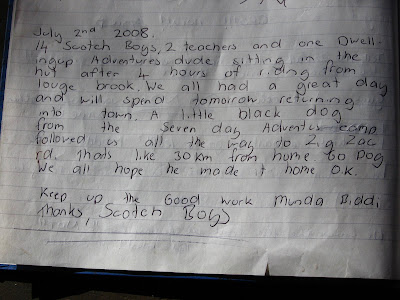 July 2nd 2008.
14 Scotch Boys, 2 teachers and one Dwell-
ingup Adventures dude sitting in the
hut after 4 hours of riding from
louge brook. We all had a great day
and will spend tomorrow returning
into town. A little black dog
from the Seven day Adventus camp
followed us all the way to Zig Zac
rd. Thats like 30 km from home 60 Dog
We all hope he made it home O.K.
Keep up the Good work Munda Biddi
Thanks, Scotch Boys